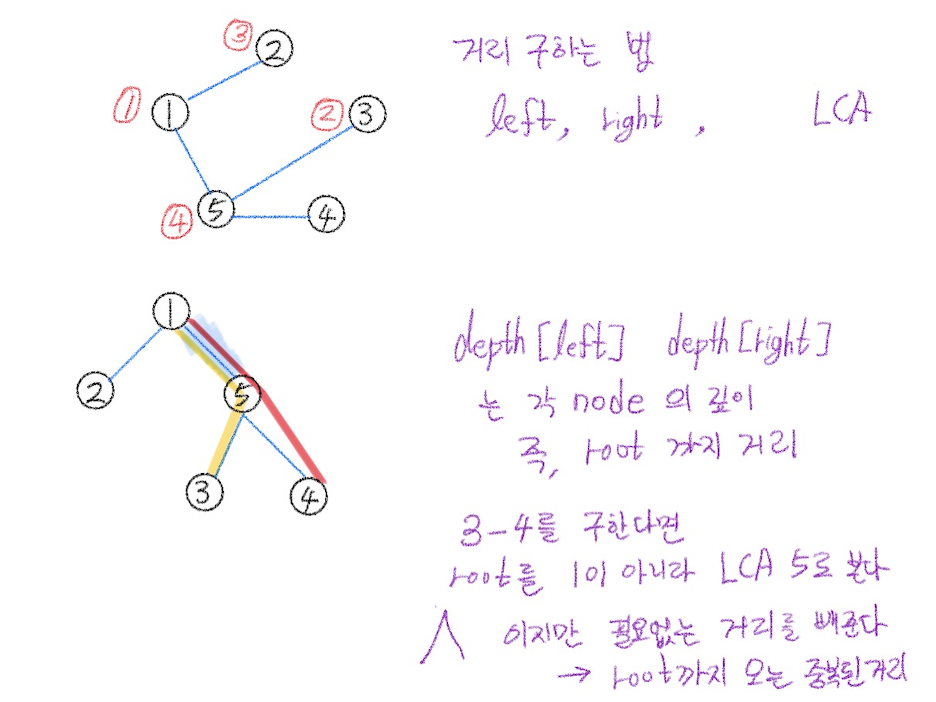 ③ ②
① ① ② ③
④ ⑤ ④
거리 구하는 법
left, right , LCA
①
② ⑤
③ ④
depth[left] depth[right]
는 각 node 의 깊이
즉, root 까지 거리
3-4를 구한다면
root를 1이 아니라 LCA 5로 본다
이지만 필요없는 거리를 빼준다
→ root까지 오는 중복된거리